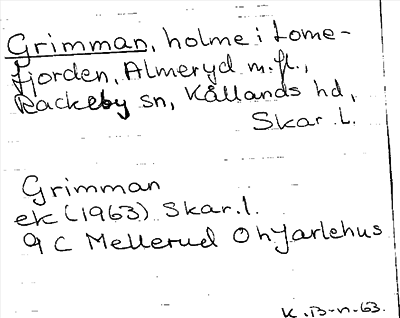 Grimman, holme i Lome-
fjorden, Almeryd m.fl.,
Rackeby sn, Kållands hd,
Skar.l.
Grimman
ek (1963) Skar.l.
9 C Mellerud O hjarlehus
K.B-n.63.